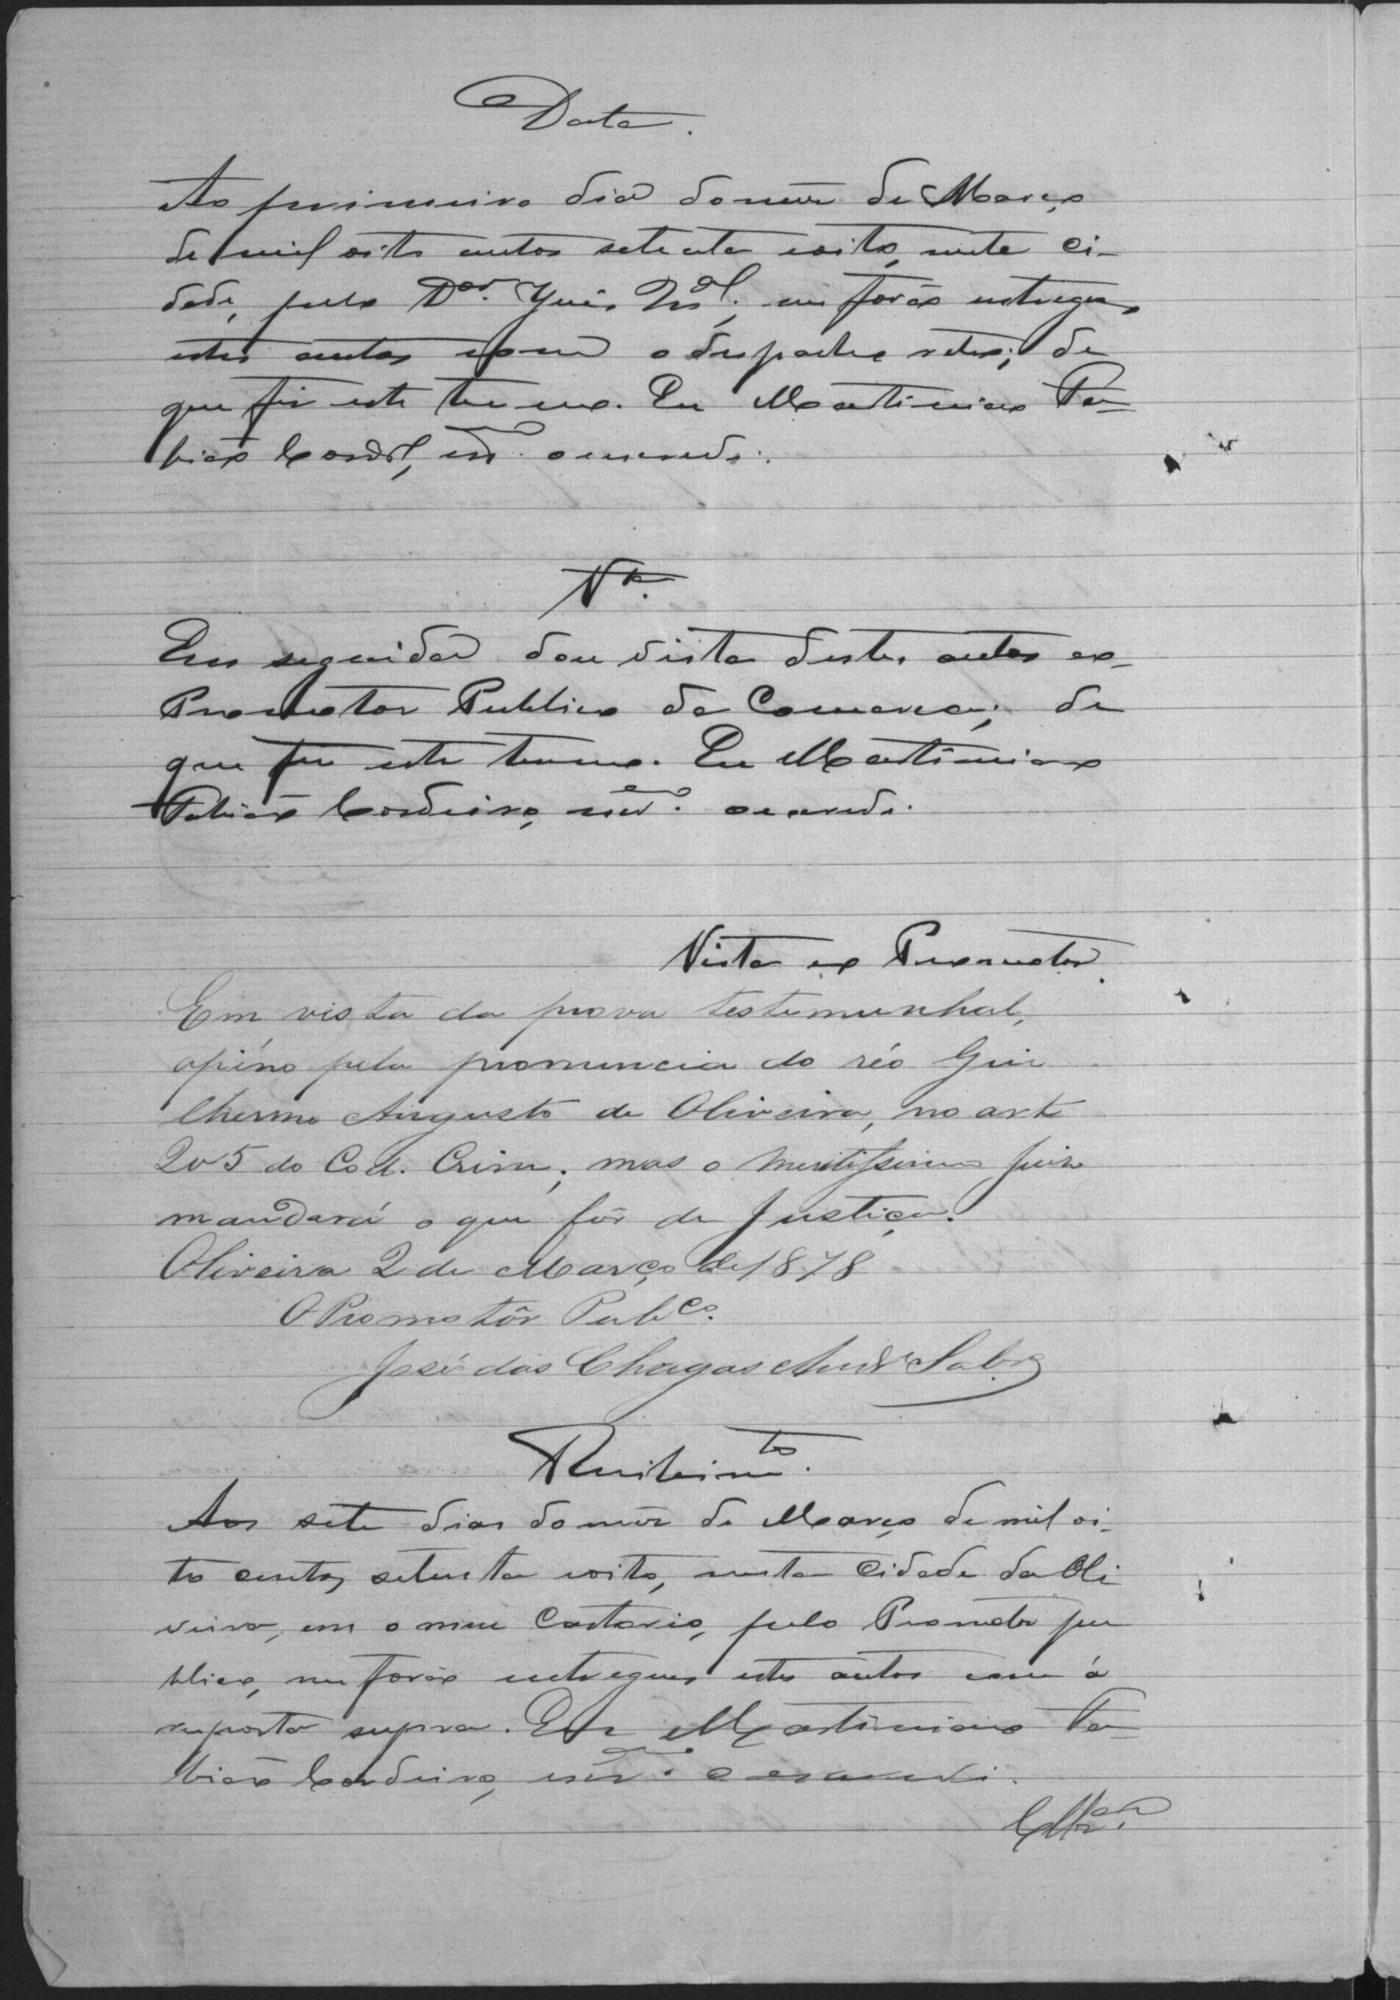 Data.
Ao primeiro dia do mez de Março
de mil oito centos setenta e oito, nesta ci-
dade, pelo Dor. Juis Mal., me forão entregues
estes autos com o despacho retro; de
que fiz este termo. Eu Martiniano Fa-
bião Cordro, esn. o escrevi.
Va.
Em seguida dou vista destes autos ao
Promotor Publico da Comarca; de
que fiz este termo. Eu Martiniano
Fabião Cordeiro, esn. o escrevi.
Vista ao Promotor.
Em vista da prova testemunhal,
opino pela pronuncia do réo Gui
lherme Augusto de Oliveira, no art
205 do Cod. Crim; mas o meritissimo Juiz
mandará o que fôr de Justiça.
Oliveira 2 de Março de 1878
O Promotôr Pubco.
José das Chagas Andre
Recebimto.
Aos sete dias do mez de Março de mil oi-
to centos setenta e oito, nesta Cidade da Oli
veira, em o meu Cartorio, pelo Promotor pu
blico, me forão entregues estes autos com a
resposta supra. Eu Martiniano Fa-
bião Cordeiro, esn. o escrevi.